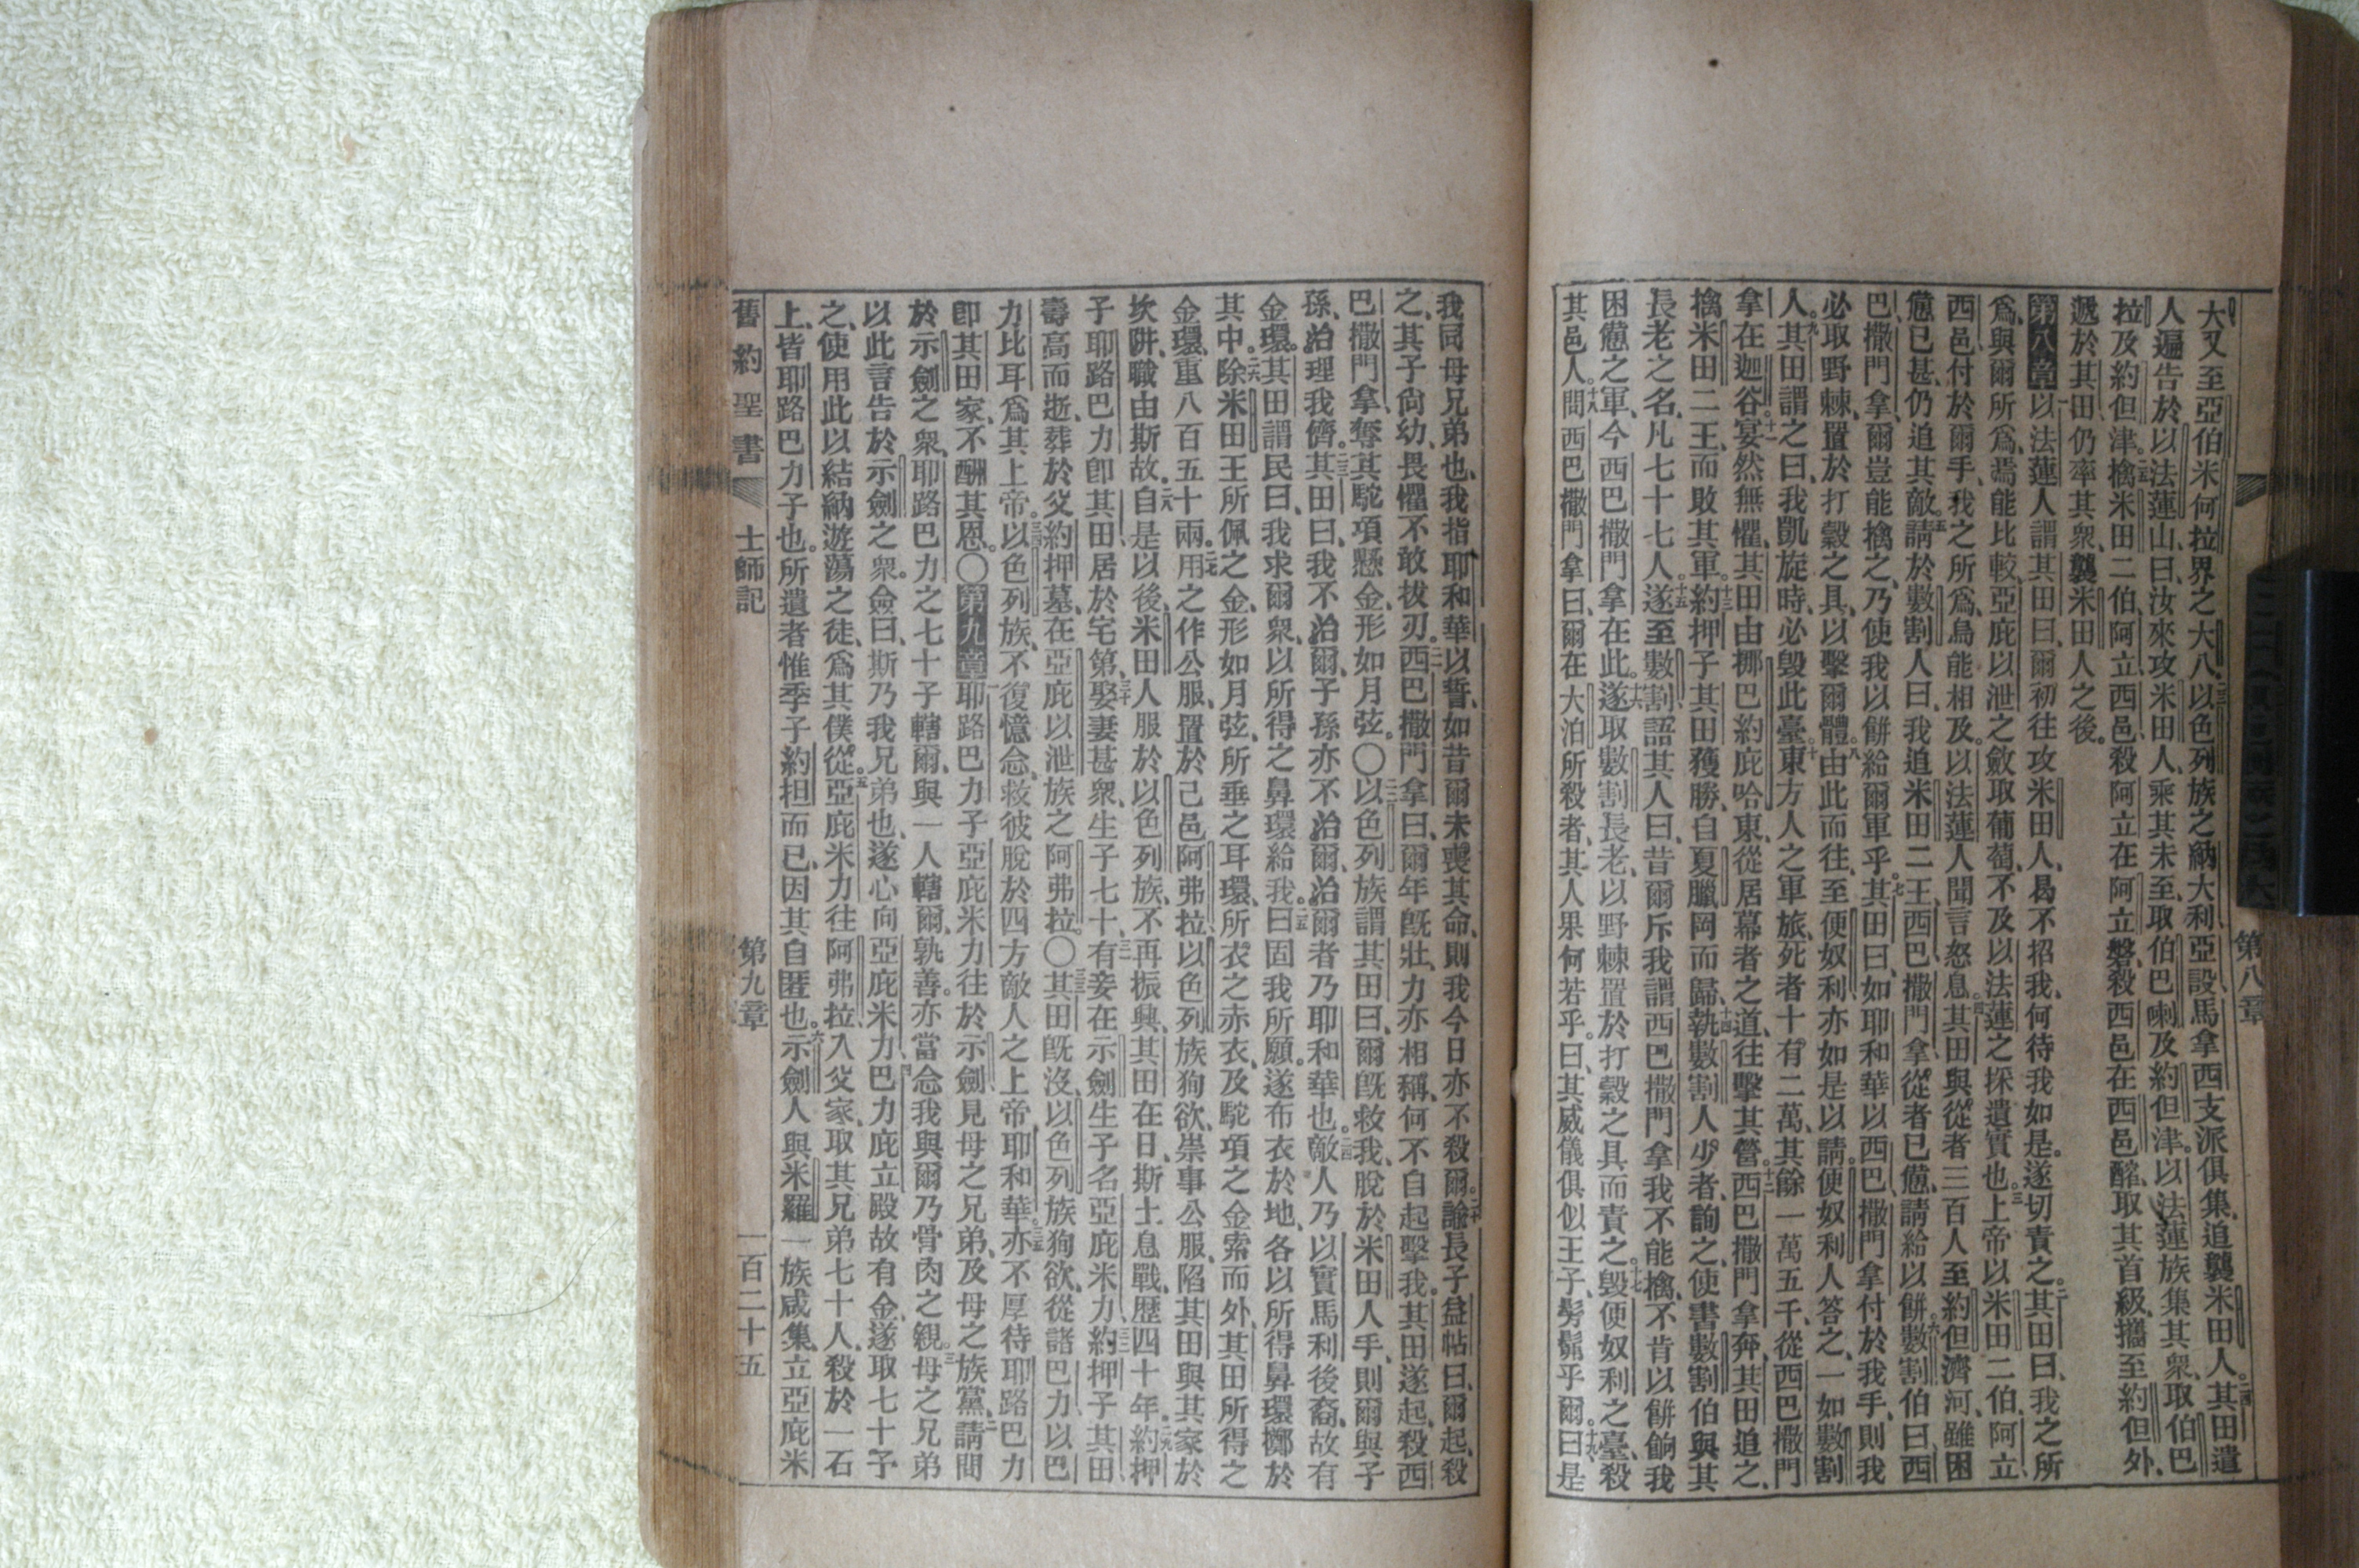 大又至亞伯米何拉界之大八以色列族之納大利亞設馬拿西支派俱集追襲米田人其田遣
人遍告於以法蓮山曰汝來攻米田人乘其未至取伯巴喇及約但津以法蓮族集其衆取伯巴
拉及約但津擒米田二伯阿立西邑殺阿立在阿立磐殺西邑在西邑醡取其首級攜至約但外
遞於其田仍率其衆襲米田人之後
第八章以法蓮人謂其田曰爾初往攻米田人曷不招我何待我如是遂切責之其田曰我之所
爲與爾所爲焉能比較亞庇以泄之斂取葡萄不及以法蓮之採遺實也上帝以米田二伯阿立
西邑付於爾手我之所爲烏能相及以法蓮人聞言怒息其田與從者三百人至約但濟河雖困
憊已甚仍追其敵請於數割人曰我追米田二王西巴撒門拿從者已憊請給以餅數割伯曰西
巴撒門拿爾豈能擒之乃使我以餅給爾軍乎其田曰如耶和華以西巴撒門拿付於我手則我
必取野棘置於打穀之具以擊爾體由此而往至便奴利亦如是以請便奴利人答之一如數割
人其田謂之曰我凱旋時必毀此臺東方人之軍旅死者十有二萬其餘一萬五千從西巴撒門
拿在迦谷宴然無懼其田由挪巴約庇哈東從居幕者之道往擊其營西巴撒門拿奔其田追之
擒米田二王而敗其軍約押子其田獲勝自夏臘岡而歸執數割人少者詢之使書數割伯與其
長老之名凡七十七人遂至數割語其人曰昔爾斥我謂西巴撒門拿我不能擒不肯以餅餉我
困憊之軍今西巴撒門拿在此遂取數割長老以野棘置於打穀之具而責之毀便奴利之臺殺
其邑人問西巴撒門拿曰爾在大泊所殺者其人果何若乎曰其威儀俱似王子髣髴乎爾曰是
第八章
我同母兄弟也我指耶和華以誓如昔爾未喪其命則我今日亦不殺爾諭長子益帖曰爾起殺
之其子尙幼畏懼不敢拔刃西巴撒門拿曰爾年旣壯力亦相稱何不自起擊我其田遂起殺西
巴撒門拿奪其駝項懸金形如月弦〇以色列族謂其田曰爾旣救我脫於米田人手則爾與子
孫治理我儕其田曰我不治爾子孫亦不治爾治爾者乃耶和華也敵人乃以實馬利後裔故有
金環其田謂民曰我求爾衆以所得之鼻環給我曰固我所願遂布衣於地各以所得鼻環擲於
其中除米田王所佩之金形如月弦所垂之耳環所衣之赤衣及駝項之金索而外其田所得之
金環重八百五十兩用之作公服置於己邑阿弗拉以色列族狥欲崇事公服陷其田與其家於
坎阱職由斯故自是以後米田人服於以色列族不再振興其田在日斯土息戰歷四十年約押
子耶路巴力卽其田居於宅第娶妻甚衆生子七十有妾在示劍生子名亞庇米力約押子其田
壽高而逝葬於父約押墓在亞庇以泄族之阿弗拉〇其田旣沒以色列族狥欲從諸巴力以巴
力比耳爲其上帝以色列族不復憶念救彼脫於四方敵人之上帝耶和華亦不厚待耶路巴力
卽其田家不酬其恩〇第九章耶路巴力子亞庇米力往於示劍見母之兄弟及母之族黨請問
於示劍之衆耶路巴力之七十子轄爾與一人轄爾孰善亦當念我與爾乃骨肉之親母之兄弟
以此言告於示劍之衆僉曰斯乃我兄弟也遂心向亞庇米力巴力庇立殿故有金遂取七十予
之使用此以結納遊蕩之徒爲其僕從亞庇米力往阿弗拉入父家取其兄弟七十人殺於一石
上皆耶路巴力子也所遺者惟季子約担而已因其自匿也示劍人與米羅一族咸集立亞庇米
舊約聖書 士師記 第九章 一百二十五